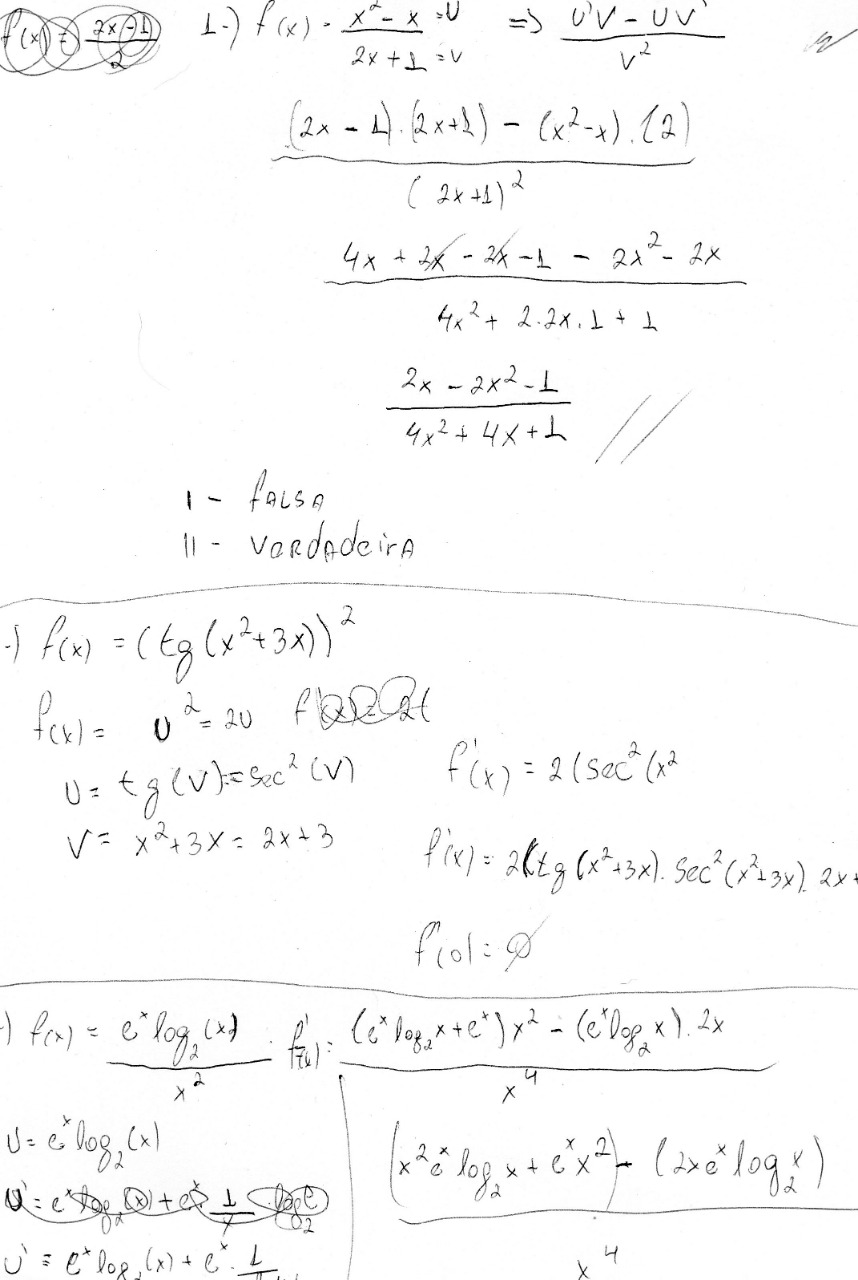 1-) f(x) = x² - x = U / 2x + 1 = V => U'V - UV' / V²
(2x - 1).(2x+1) - (x²-x).(2) / (2x+1)²
4x + 2x - 2x - 1 - 2x² - 2x / 4x² + 2.2x.1 + 1
2x - 2x² - 1 / 4x² + 4x + 1 //
I - FALSA
II - VERDADEIRA
-) f(x) = (tg(x²+3x))²
f(x) = U² = 2U
U = tg(V) = Sec²(V)
V = x²+3x = 2x+3
f'(x) = 2(Sec²(x²
f'(x) = 2(tg(x²+3x). Sec²(x²+3x). 2x+
f'(0) = 0
-) f(x) = e^x log₂(x) / x² . f'(x) = (e^x log₂x + e^x)x² - (e^x log₂x).2x / x⁴
U = e^x log₂(x)
U' = e^x log₂(x) + e^x. 1
(x²e^x log₂x + e^x x²) - (2xe^x log₂x) / x⁴